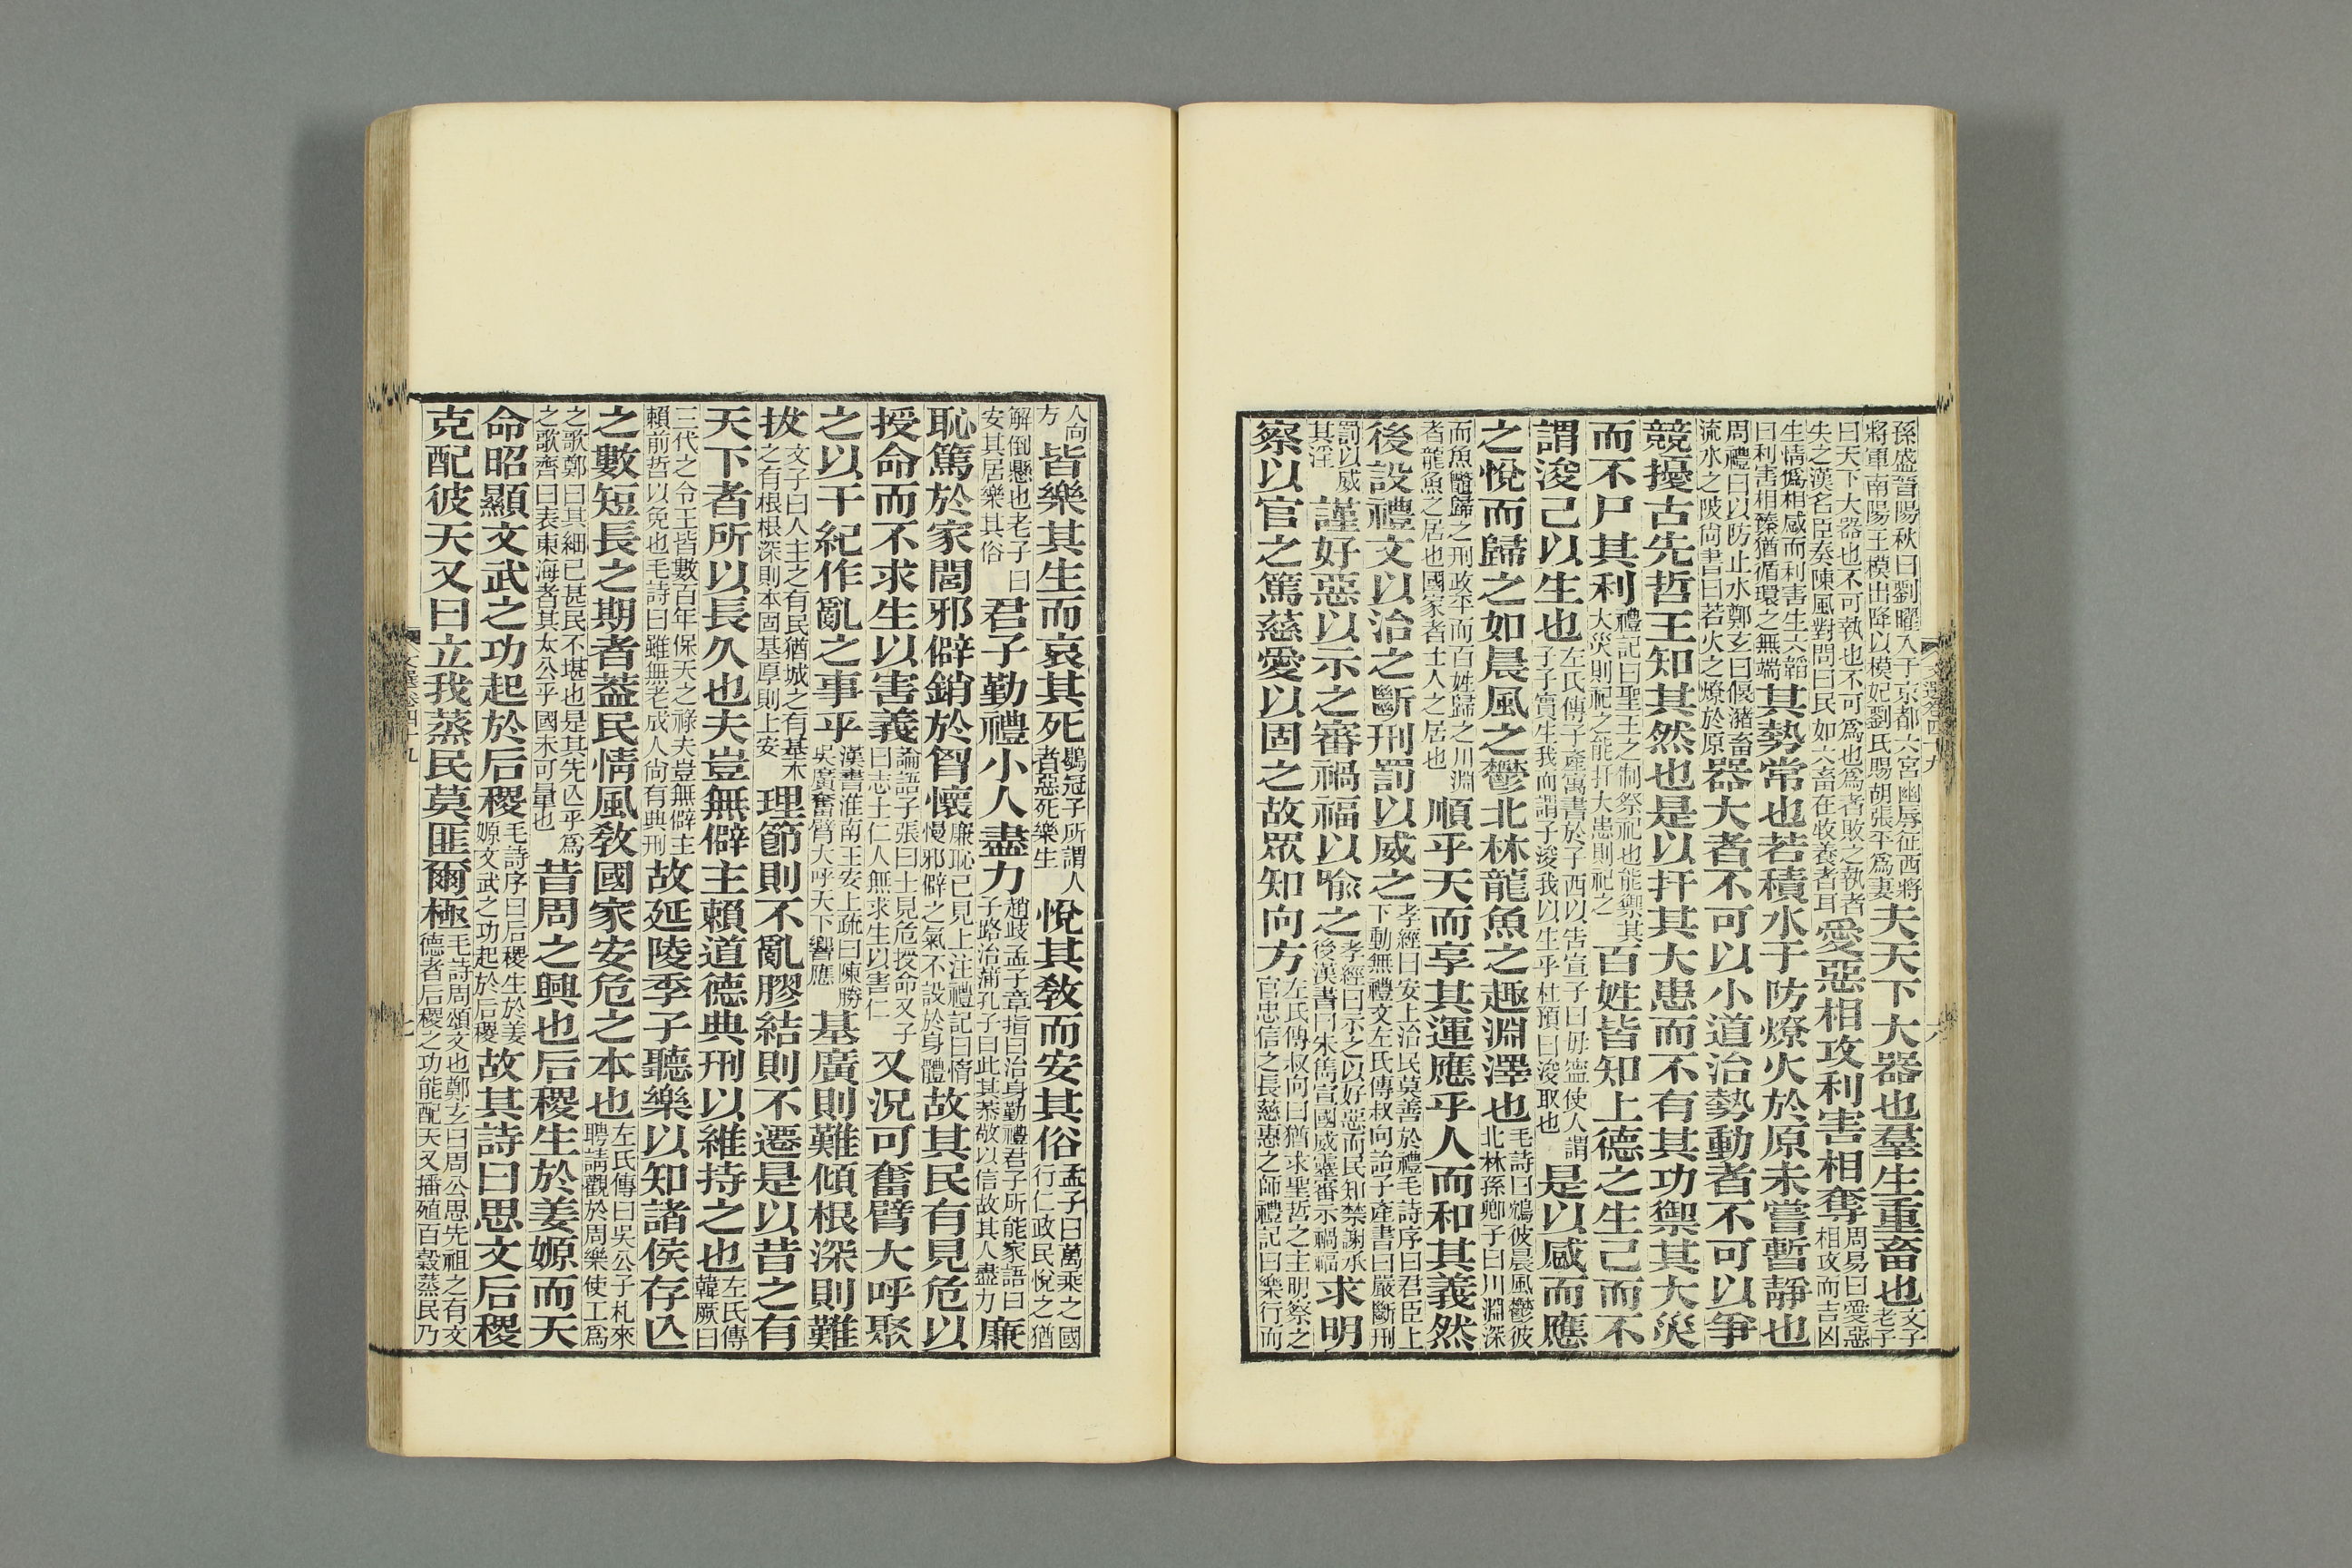 孫盛晉陽秋曰劉曜入于京都六宮幽辱征西將
將軍南陽王模出降以模妃劉氏賜胡張平爲妻
夫天下大器也羣生重畜也
文子
老子
曰天下大器也不可執也不可爲也爲者敗之執者
失之漢名臣奏陳風對問曰民如六畜在牧養者耳
愛惡相攻利害相奪
周易曰愛惡
相攻而吉凶
生情僞相感而利害生六韜
曰利害相臻猶循環之無端
其勢常也若積水于防燎火於原未嘗暫靜也
周禮曰以防止水鄭玄曰偃豬畜
流水之陂尙書曰若火之燎於原
器大者不可以小道治勢動者不可以爭
競擾古先哲王知其然也是以扞其大患而不有其功禦其大災
而不尸其利
禮記曰聖王之制祭祀也能禦其
大災則祀之能扞大患則祀之
百姓皆知上德之生己而不
謂浚己以生也
左氏傳子產寓書於子西以告宣子曰毋寧使人謂
子子實生我而謂子浚我以生乎杜預曰浚取也
是以感而應
之悅而歸之如晨風之鬱北林龍魚之趣淵澤也
毛詩曰鴥彼晨風鬱彼
北林孫卿子曰川淵深
而魚鼈歸之刑政平而百姓歸之川淵
者龍魚之居也國家者士人之居也
順乎天而享其運應乎人而和其義然
後設禮文以治之斷刑罰以威之
孝經曰安上治民莫善於禮毛詩序曰君臣上
下動無禮文左氏傳叔向詒子產書曰嚴斷刑
罰以威
其淫
謹好惡以示之審禍福以喻之
孝經曰示之以好惡而民知禁謝承
後漢書曰朱雋宣國威靈審示禍福
求明
察以官之篤慈愛以固之故眾知向方
左氏傳叔向曰猶求聖哲之主明察之
官忠信之長慈惠之師禮記曰樂行而
文選卷四十九
六
人向
方
皆樂其生而哀其死
鶡冠子所謂人
者惡死樂生
悅其敎而安其俗
孟子曰萬乘之國
行仁政民悅之猶
解倒懸也老子曰
安其居樂其俗
君子勤禮小人盡力
趙歧孟子章指曰治身勤禮君子所能家語曰
子路治蒲孔子曰此其恭敬以信故其人盡力
廉
恥篤於家閭邪僻銷於胷懷
廉恥已見上注禮記曰惰
慢邪僻之氣不設於身體
故其民有見危以
授命而不求生以害義
論語子張曰士見危授命又子
曰志士仁人無求生以害仁
又況可奮臂大呼聚
之以干紀作亂之事乎
漢書淮南王安上疏曰陳勝
吳廣奮臂大呼天下響應
基廣則難傾根深則難
拔
文子曰人主之有民猶城之有基木
之有根根深則本固基厚則上安
理節則不亂膠結則不遷是以昔之有
天下者所以長久也夫豈無僻主賴道德典刑以維持之也
左氏傳
韓厥曰
三代之令王皆數百年保天之祿夫豈無僻主
賴前哲以免也毛詩曰雖無老成人尙有典刑
故延陵季子聽樂以知諸侯存亾
之數短長之期者葢民情風敎國家安危之本也
左氏傳曰吳公子札來
聘請觀於周樂使工爲
之歌鄭曰其細已甚民不堪也是其先亾乎爲
之歌齊曰表東海者其太公乎國未可量也
昔周之興也后稷生於姜嫄而天
命昭顯文武之功起於后稷
毛詩序曰后稷生於姜
嫄文武之功起於后稷
故其詩曰思文后稷
克配彼天又曰立我蒸民莫匪爾極
毛詩周頌文也鄭玄曰周公思先祖之有文
德者后稷之功能配天又播殖百穀蒸民乃
文選卷四十九
七